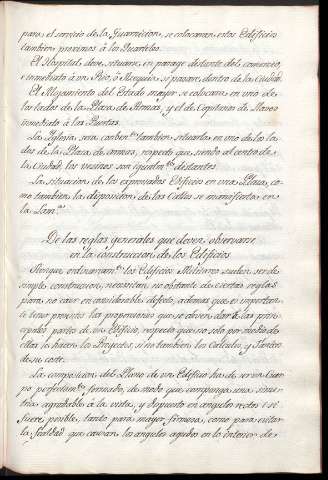 para el servicio de la Guarnicion, se colocaran estos Edificios
tambien proximos à los Quarteles.
El Hospital deve situarse en parage distante del comercio,
è inmediato à un Rio, ò Azequia si pasare, dentro de la Ciudad.
El Alojamiento del Estado mayor se colocara en uno de
los lados de la Plaza de Armas, y el de Capitanes de llaves
inmediato à las Puertas.
La Yglesia sera conben.te tambien situarla en uno de los la-
dos de la Plaza de armas, respecto que siendo el centro de
la Ciudad, los vecinos son igualm.te distantes.
La situacion de los expresados Edificios en una Plaza, co-
mo tambien la disposicion de las Calles se manifiesta en
la Lam.a
De las reglas generales que deven observarse
en la construccion de los Edificios
Aunque ordinariam.te los Edificios Militares suelen ser de
simple construccion, necesitan no obstante de ciertas reglas
para no caer en considerable defecto, ademas que es importan-
te tener previstas las proporciones que se deven dar à las prin-
cipales partes de un Edificio, respecto que no solo por medio de
ellas se hacen los Proyectos, si no tambien los Calculos, y Tanteos
de su coste.
La composicion del Plano de un Edificio ha de ser un Cuer-
po perfectam.te formado, de modo que componga una sime-
tria agradable à la vista, y dispuesto en angulos rectos si
fuere posible, tanto para mayor firmeza, como para evitar
la fealdad que causan los angulos agudos en lo interior de